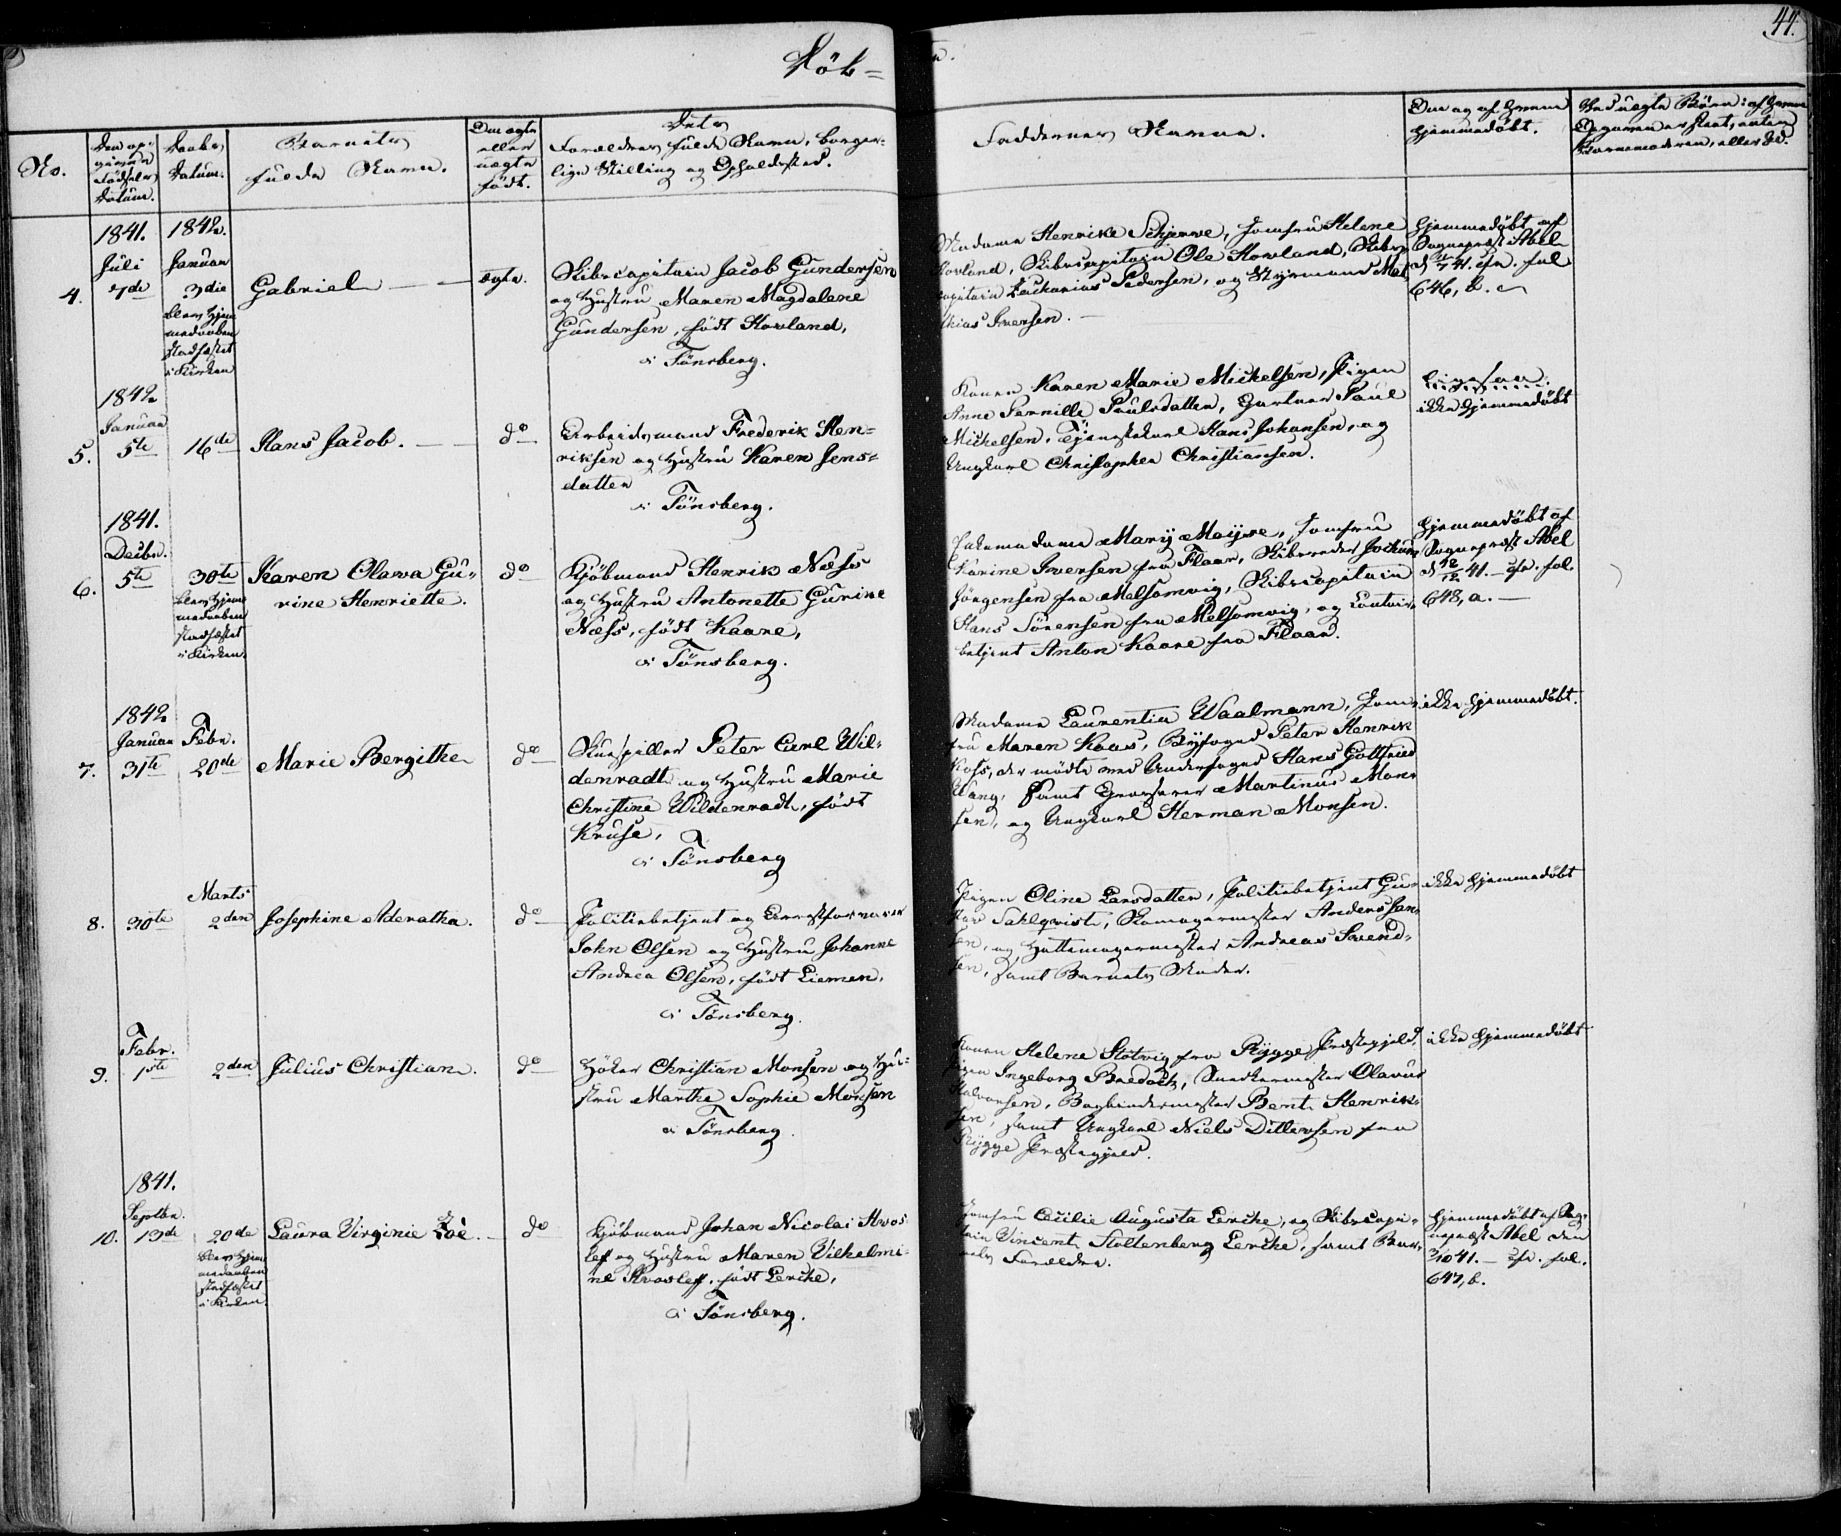 44.
Døb-
e.
No.
Den op-
givne
Fødsels
Datum.
Daabs
Datum.
Barnets
fulde Navn.
Om ægte
eller
uægte
født.
Dets
Forældres fulde Navn, borger-
lige Stilling og Opholdssted.
Faddernes Navne.
Om og af hvem
hjemmedøbt.
Ved uægte Børn: af hvem
Opgaven er skeet, enten
Barnemoderen, eller
4.
1841.
Juli
7de
1842.
Januar
3die
blev Hjem
medaaben
stadfæstet
i Kirken
Gabriel
ægte.
Skibscapitain Jacob Gundersen
og Hustru Maren Magdalene
Gundersen, født Howland,
i Tönsberg.
Madame Henrike Schjerve, Jomfru Helene
Howland, Skibscapitain Ole Howland, Skibs-
capitain Zacharias Pedersen, og Styrmand Mat-
thias Iversen.
Hjemmedøbt af
Sognepræst Abel
41. cfr. fol.
646, b.
5.
1842
Januar
5te
16de
Hans Jacob.
do
Arbeidsmand Frederik Hen-
riksen og Hustru Karen Jens-
datter
i Tönsberg.
Konen Karen Marie Mickelsen, Pigen
Anne Pernille Paulsdatter, Gartner Paul
Mickelsen, Tjenestekarl Hans Johansen, og
Ungkarl Christopher Christiansen.
ikke hjemmedøbt
6.
1841.
Decbr.
5te
30te
blev Hjem
medaaben
stadfæstet
i Kirken.
Karen Olava Gu-
rine Henriette.
do
Kjöbmand Henrik Næss
og Hustru Antonette Gurine
Næss, født Kaare,
i Tönsberg.
Mary Meyer, Jomfru
Karine Iversen fra Flaar, Skibsreder Jochum
Jörgensen fra Melsomvig, Skibscapitain
Hans Sörensen fra Melsomvig, og Contoir-
betjent Anton Kaare fra Flaar.
Hjemmedøbt af
Sognepræst Abel
d 12/12 41. – cfr. fol.
648, a.
7.
1842
Januar
31te
Febr.
20de
Marie Bergithe
do
Skuespiller Peter Carl Wil-
denradt og Hustru Marie
Christine Wildenradt, født
Kruse,
i Tönsberg
Madame Laurentia Waalmann, Jom-
fru Maren Kaas, Byfoged Peter Henrik
Koss, der mødte ved Underfoged Hans Gottfried
Wang, samt Graverer Martinus Mon-
sen, og Ungkarl Herman Monsen.
ikke hjemmedøbt.
8.
30te
Marts
2den
Josephine Aderatha.
do
Politiebetjent og Arrestforvarer
John Olsen og Hustru Johanne
Andrea Olsen, født Liemen,
i Tönsberg.
Pigen Oline Larsdatter, Politiebetjent Gu-
stav Sahlqvist, Skomagermester Anders Han-
sen, og Hattemagermester Andreas Svend-
sen, samt Barnets Moder.
ikke hjemmedøbt
9.
Febr.
1ste
2den
Julius Christian.
do
Høker Christian Monsen og Hu-
stru Marthe Sophie Monsen
i Tönsberg.
Konen Helene Slotvig fra Rygge Præstegjeld.
Pigen Ingeborg Bredock, Snedkermester Olavus
Halvorsen, Bogbindermester Bent Henrik-
sen, samt Ungkarl Niels Ditlevsen fra
Rygge Præstegjeld.
ikke hjemmedøbt
10.
1841.
Septbr.
13de
20de
blev Hjem
medaaben
stadfæstet
i Kirken.
Laura Virginie Zoë.
do
Kjöbmand Johan Nicolai Hvos-
lef og Hustru Maren Vilhelmi-
ne Hvoslef, født Lerche,
i Tönsberg.
Jomfru Cecilie Augusta Lerche, og Skibscapi-
tain Vincent Stoltenberg Lerche, samt Bar-
nets Forældre.
Hjemmedøbt af Sog-
nepræst Abel den
41. – cfr. fol.
647, b.